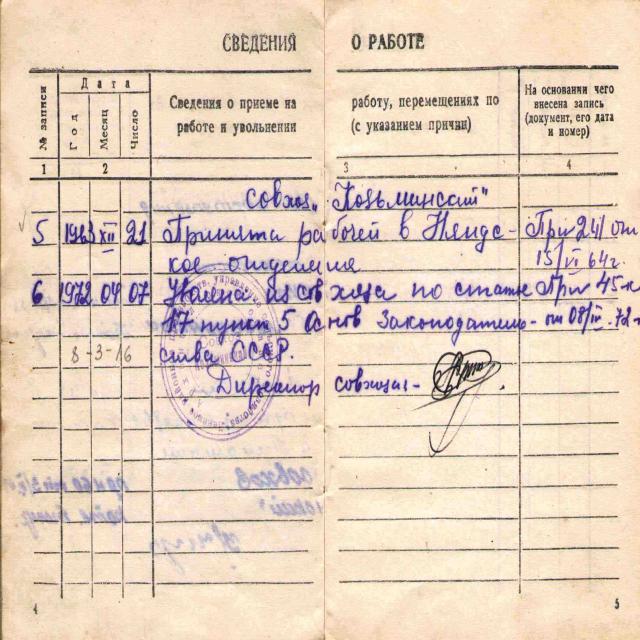 СВЕДЕНИЯ О РАБОТЕ
№ записи
Дата
Год
Месяц
Число
Сведения о приеме на работу, перемещениях по
работе и увольнении (с указанием причин)
На основании чего
внесена запись
(документ, его дата
и номер)
1 2 3 4
совхоз „Козьминский"
5 1963 XII 21 Принята рабочей в Няндс- Пр № 241 от
кое отделения 15/VI 64г.
6 1972 04 07 Уволена из совхоза по статье Пр № 45-к
17 пункт 5 Основ Законодатель- от 08/IV.72г
ства СССР.
8-3-16
Директор совхоза-
4 5